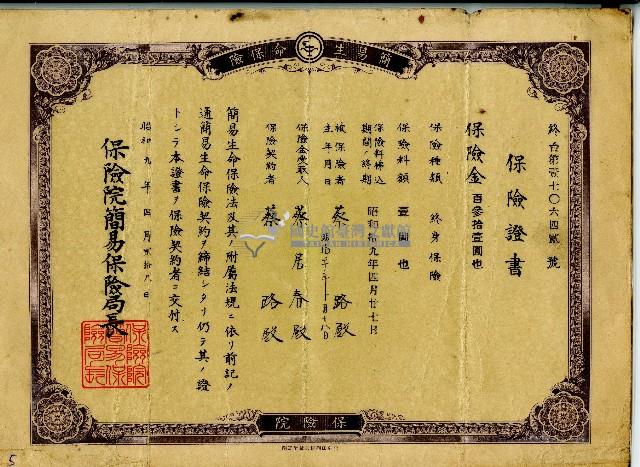 簡易生命保險
終台第壹七〇六四貳號
保險證書
保險金 百參拾壹圓也
保險種類 終身保險
保險料額 壹圓也
保險料拂込期間ノ終期 昭和拾九年四月廿七日
被保險者 蔡路殿
生年月日
保險金受取人 蔡居春殿
保險契約者 蔡路殿
簡易生命保險法及其ノ附屬法規ニ依リ前記ノ
通簡易生命保險契約ヲ締結シタリ仍テ其ノ證
トシテ本證書ヲ保險契約者ニ交付ス
昭和九年四月貳拾八日
保險院簡易保險局長
保險院
簡易保
險局長
保險院
國史館臺灣文獻館
TAIWAN HISTORICA
5